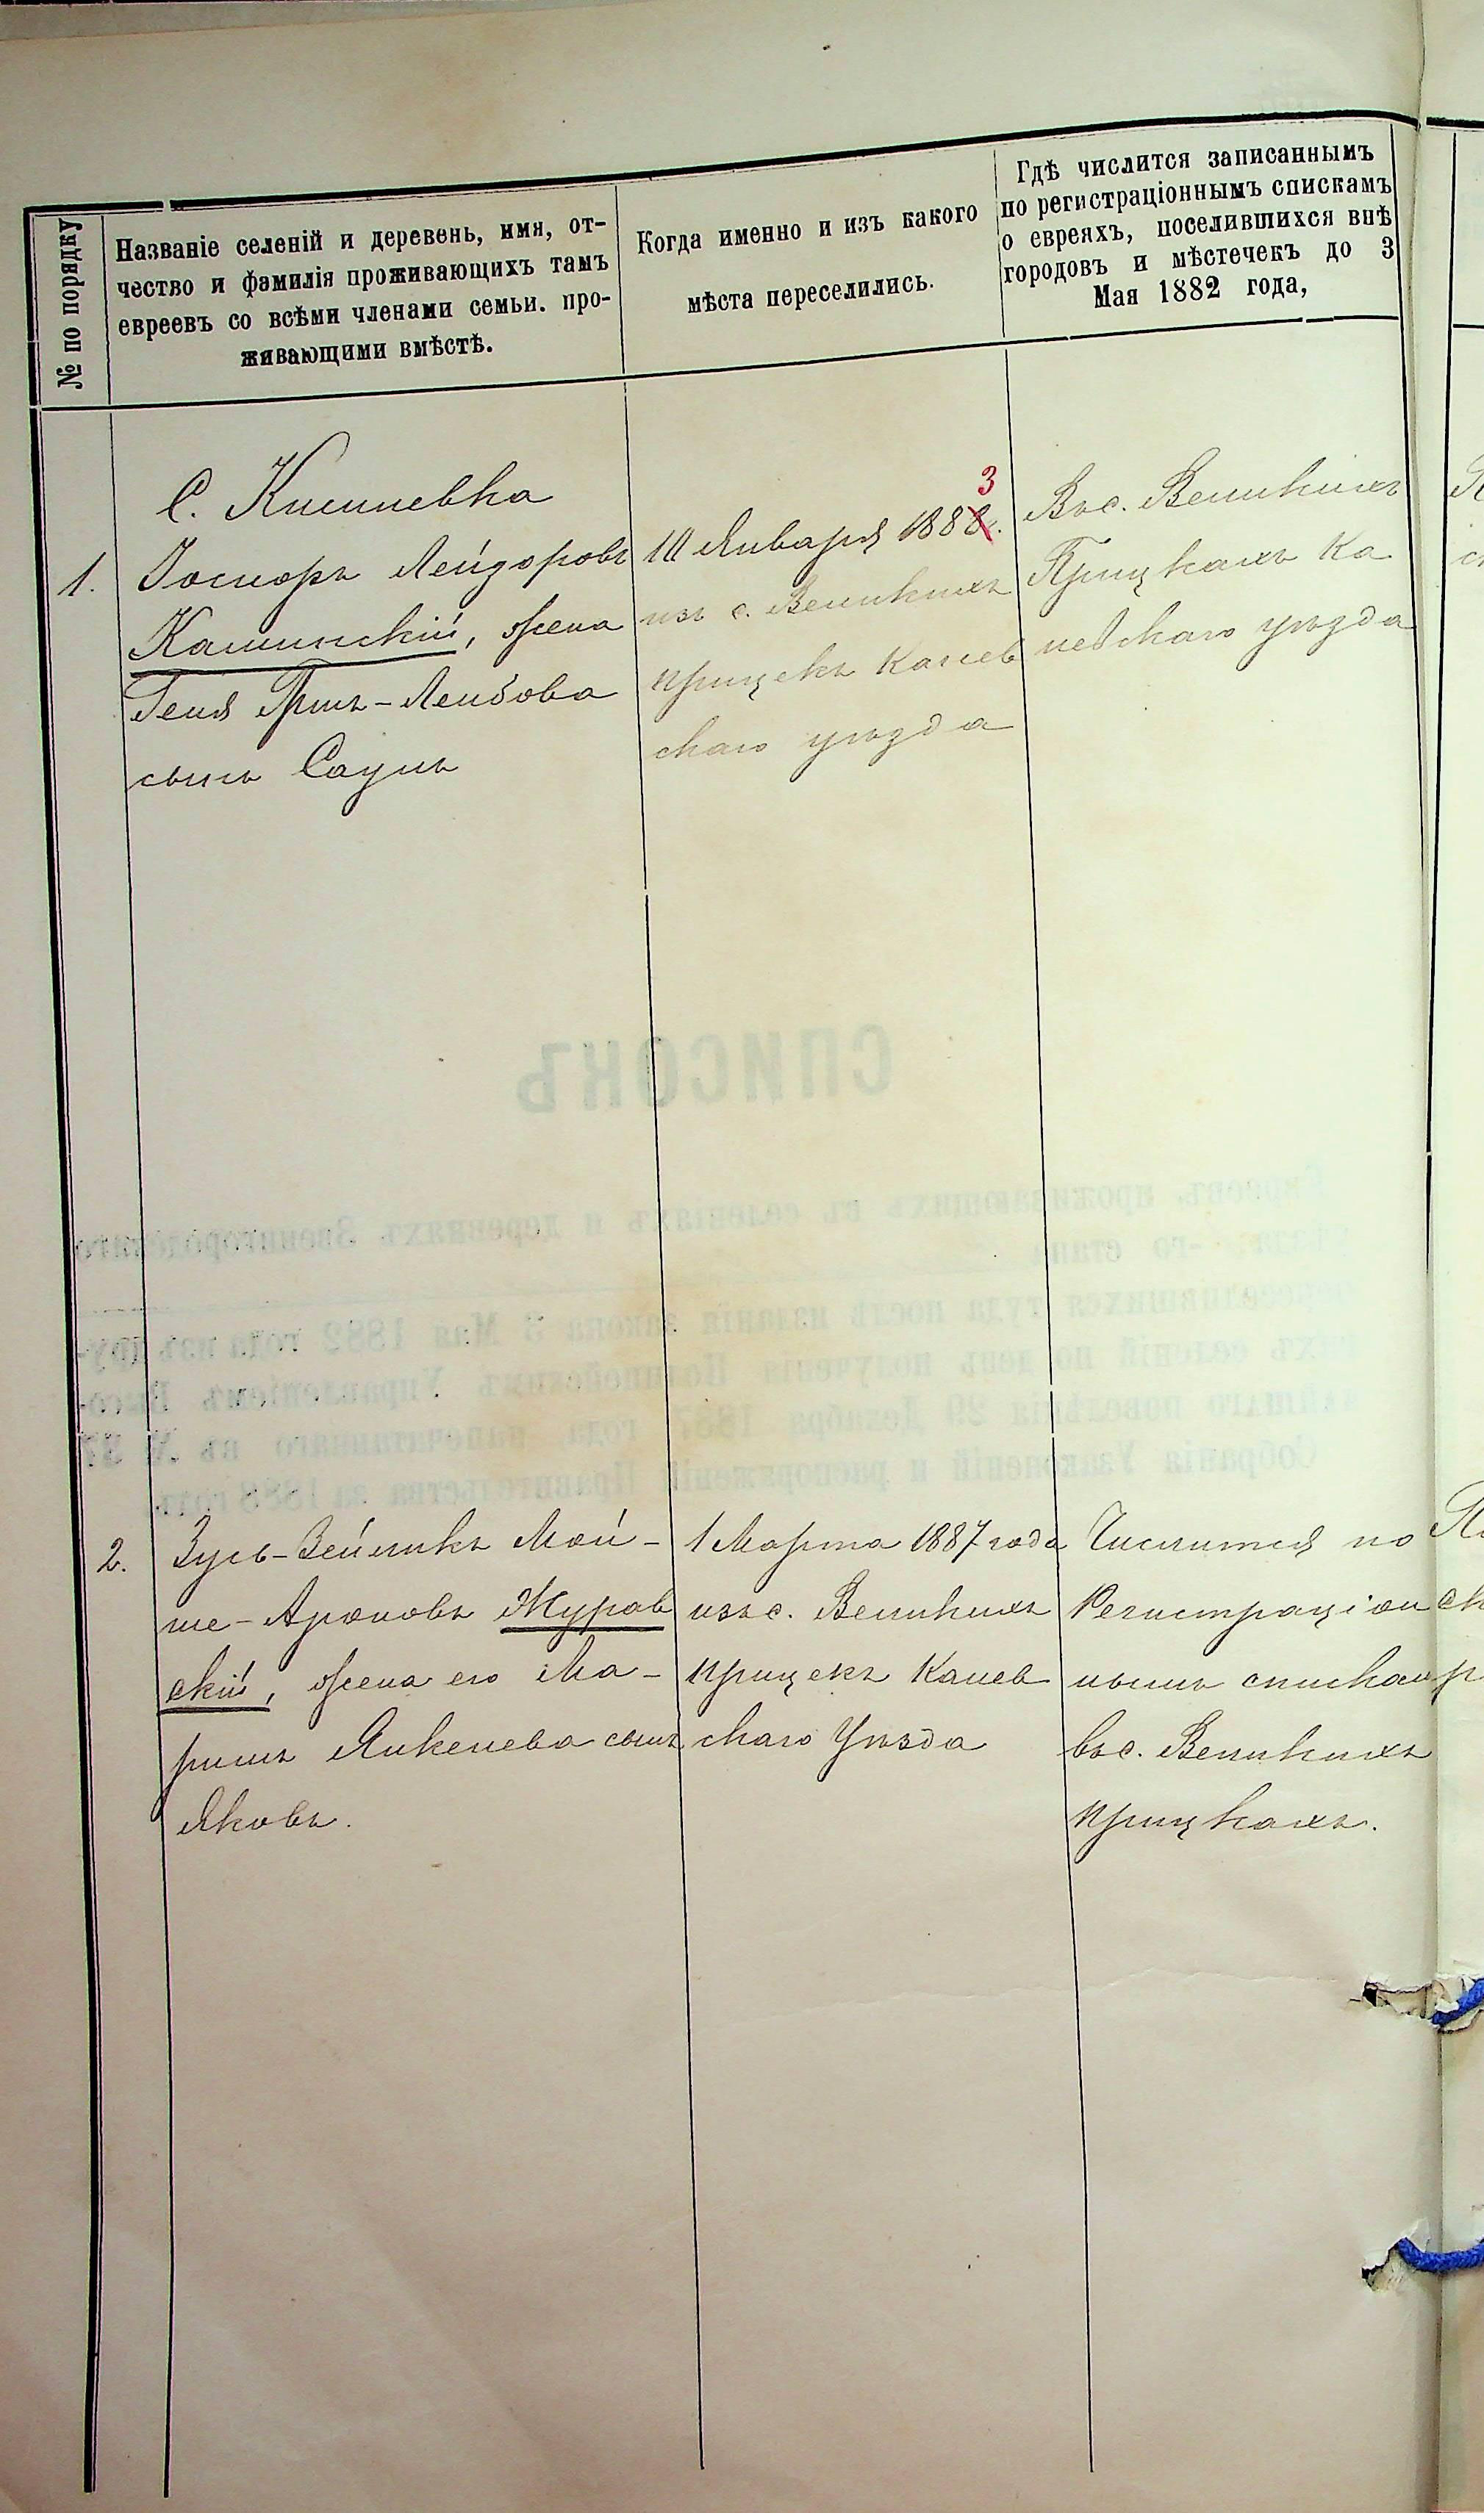 № по порядку
Названіе селеній и деревень, имя, от-
чество и фамилія проживающихъ тамъ
евреевъ со всѣми членами семьи. про-
живающими вмѣстѣ.
Когда именно и изъ какого
мѣста переселились.
Гдѣ числится записаннымъ
по регистраціоннымъ спискамъ
о евреяхъ, поселившихся внѣ
городовъ и мѣстечекъ до 3
Мая 1882 года,
С. Кишневка
1.
Лейдоровъ
Калинскій, жена
Геня Лейбова
сынъ Саулъ
3
10 Января 1882.
изъ с. Великихъ
прицекъ Канев
скаго уѣзда
Въ с. Великихъ
Прицкахъ Ка
невскаго уѣзда
2.
Зусь-Зейликъ Мой-
ше-Ароновъ Журав
скій, жена его Ма-
римъ Янкелева сынъ
Яковъ.
1 Марта 1887 года
изъ с. Великихъ
прицекъ Канев
скаго Уѣзда
Числится по
Регистраціон
нымъ спискам
въ с. Великихъ
прицкахъ.
СПИСОКЪ
Евреевъ, проживающихъ въ селеніяхъ и деревняхъ Звенигородскаго
уѣзда, -го стана
переселившихся туда послѣ изданія закона 3 Мая 1882 года изъ дру-
гихъ селеній по день полученія Полицейскимъ Управленіемъ Высо-
чайшаго повелѣнія 29 Декабря 1887 года, напечатаннаго въ №
Собранія Узаконеній и распоряженій Правительства за 1888 годъ.